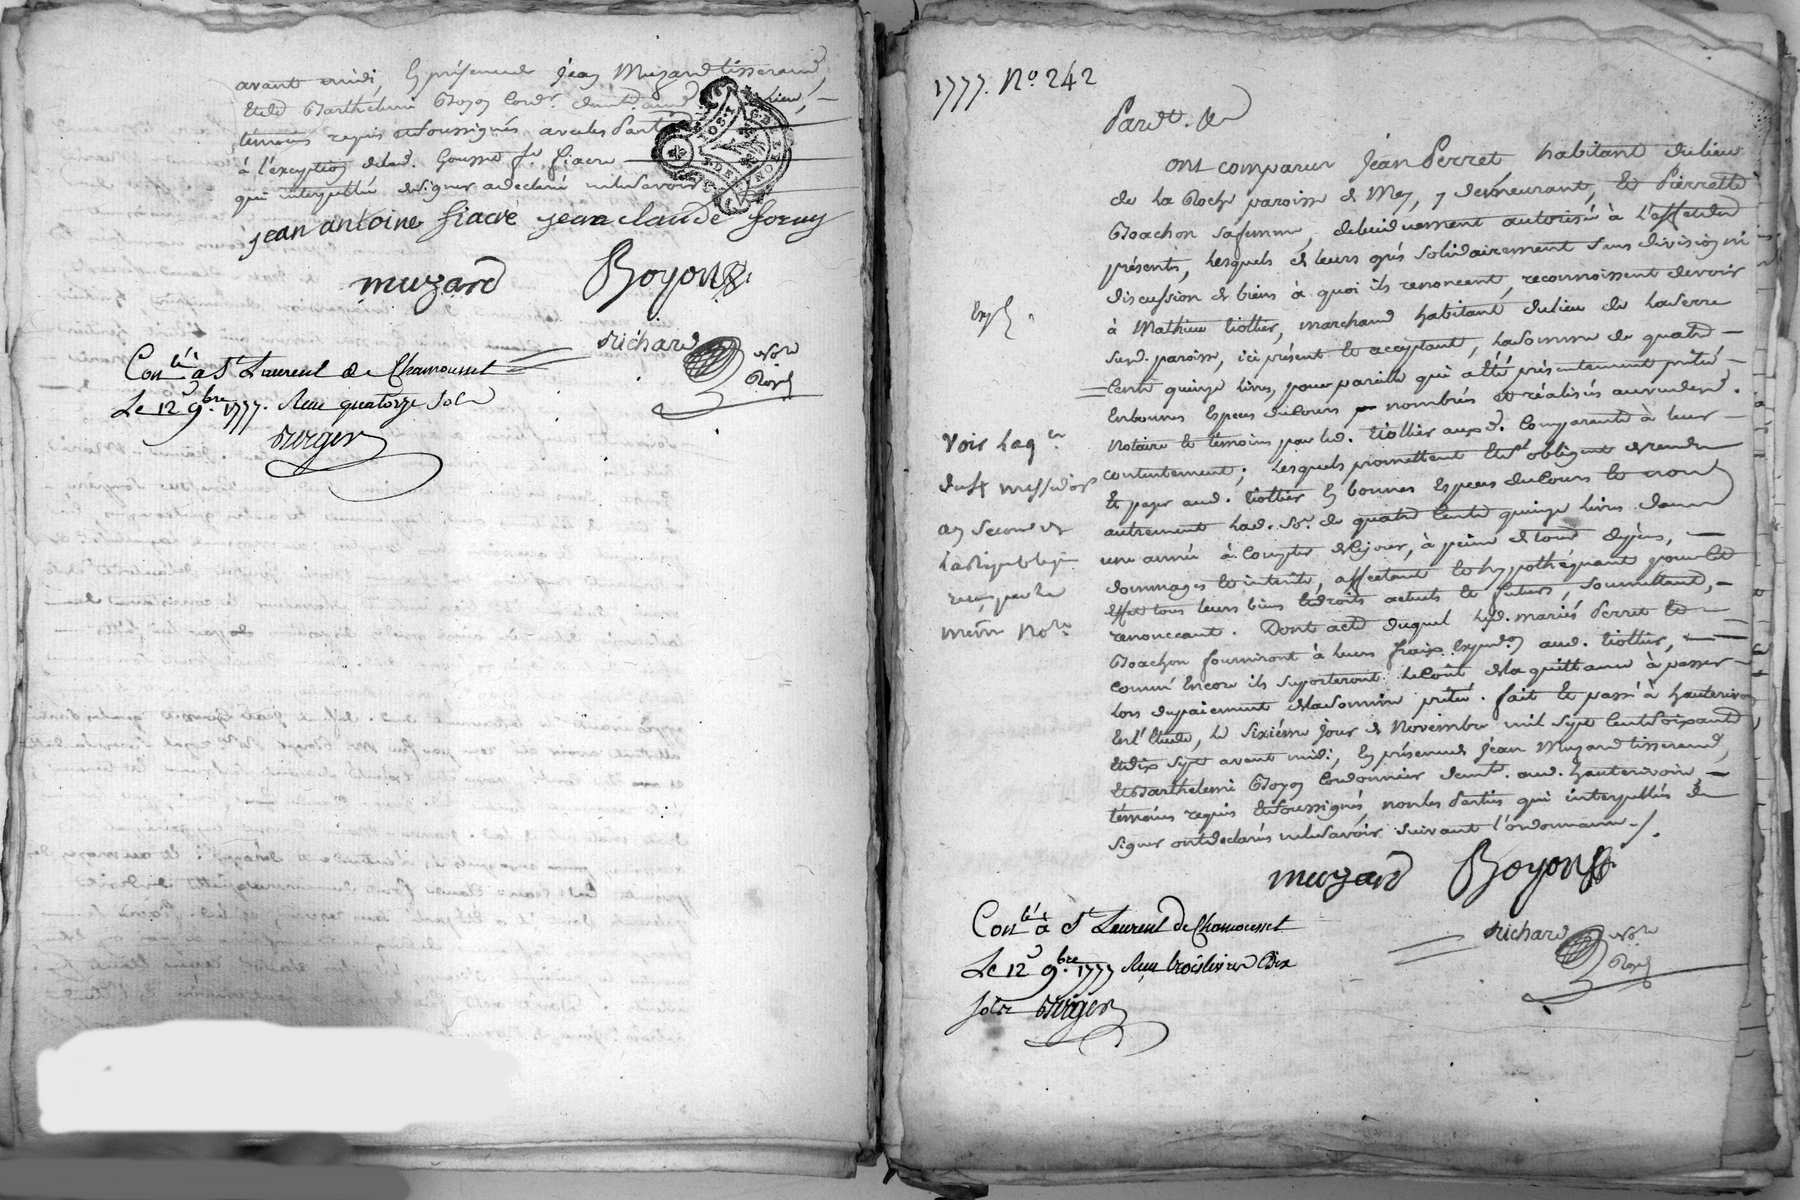 avant midi, En présence de Jean Muzard tisserand,
Et de Barthélemi Boyon Cordr. demt. aud. lieu, —
témoins requis et soussignés avec les Parties
à l'exception de lad. Gousse fe. fiacre
qui interpellée de signer a declaré ne le savoir
jean antoine fiacre jean claude
muzard Boyon
Richard Nore
Royal
Conlé. à St. Laurent de Chamousset
Le 12e 9bre. 1777. Reçu quatorze Sols
Berger
1777. No. 242
Pardt. &
ont comparu Jean Perret habitant du lieu
de la Roche paroisse de Mey, y demeurant, Et Pierrette
Boachon sa femme, debüement autorisée à l'effet des
présentes, Lesquels de leurs grés solidairement sans division ni
discussion de biens à quoi ils renoncent, reconnoissent devoir
à Mathieu tiollier, marchand habitant du lieu de Laserre
susd. paroisse, ici présent Et acceptant, La somme de quatre —
Cents quinze livres, pour pareille qui a Eté présentement prêtée —
En bonnes Especes du Cours nombrées et réalisées au vu dud.
Notaire Et témoins par led. tiollier auxd. Comparants à leur —
contentement; Lesquels promettent Et s'obligent de rendre
Et payer aud. tiollier En bonnes Especes du Cours Et non
autrement Lad. Se. de quatre Cents quinze livres dans
une année à Compter de ce jour, à peine de tous dépens, —
dommages Et interêts, affectant Et hypothéquant pour Cet
Effet tous leurs biens Et droits actuels Et futurs, soumettant, —
renonceant. Dont acte duquel Lesd. mariés Perret Et —
Boachon fourniront à leurs fraix Expedon. aud. tiollier, —
comme Encore ils suporteront Le Coût de la quittance à passer —
lors du paiement de la somme prêtée. fait Et passé à hauterivoire
En l'Etude, Le sixiéme jour de Novembre mil sept Cent soixante
Et dix sept avant midi, En présence de Jean Muzard tisserand,
Et Barthelemi Boyon Cordonnier demts. aud. hauterivoire, —
témoins requis Et soussignés, non les Parties qui interpellées de
signer ont declarés ne le savoir suivant l'ordonnance. /.
Exp.
Voir La qce
du messidor
an second de
La République
reçue par le
même Nore
muzard Boyon
Richard Nore
Royal
Conlé. à St. Laurent de Chamousset
Le 12e 9bre. 1777 Reçu trois livres Dix
Sols Berger